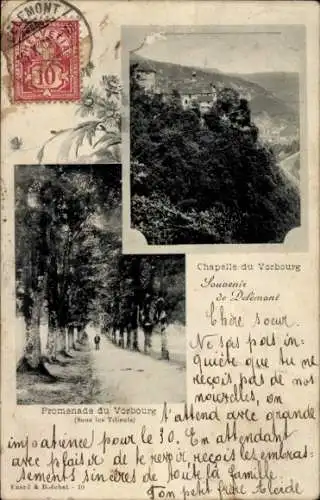 DELEMONT
HELVETIA
10
Chapelle du Vorbourg
Souvenir
de Delémont
Chère sœur.
Ne sas pas in-
quiète que tu ne
reçois pas de nos
nouvelles, on
Promenade du Vorbourg
(Sous les Tilleuls)
t'attend avec grande
impatience pour le 30. En attendant
avec plaisir de te revoir reçois les embras-
sements sincères de toute la famille.
Ton petit frère